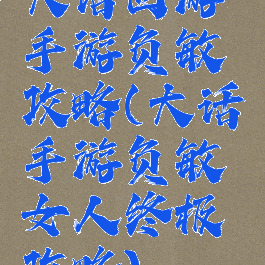 大话西游
手游负敏
攻略(大话
手游负敏
女人终极
攻略)